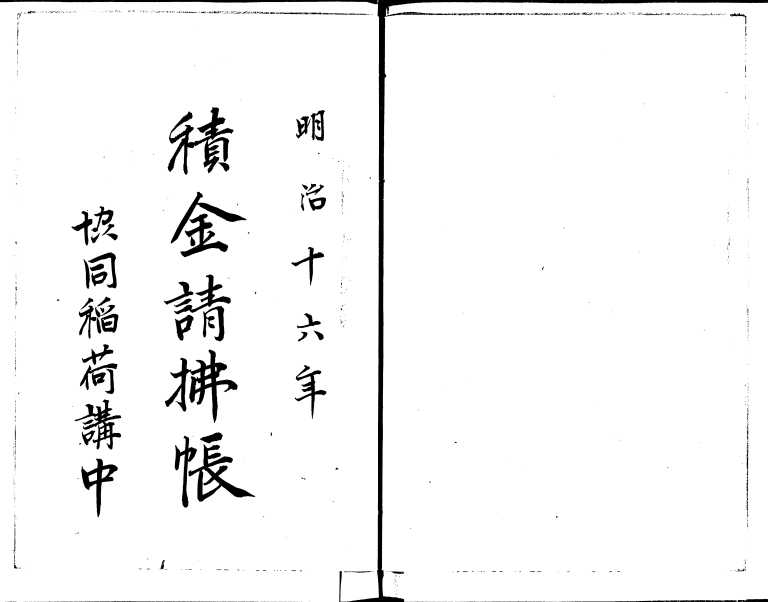 明治十六年
積金請拂帳
協同稲荷講中